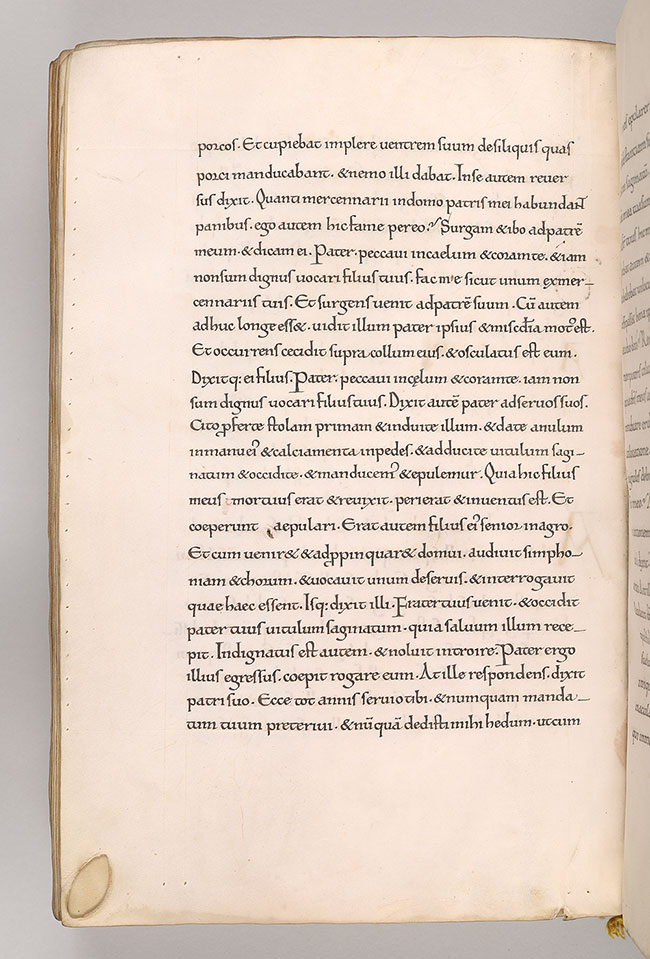 porcos. Et cupiebat implere ventrem suum desiliquis quas
porci manducabant. &nemo illi dabat. Inse autem rever
sus dixit. Quanti mercennarii indomo patris mei habundant
panibus. ego autem hicfame pereo. Surgam &ibo adpatrē
meum. &dicam ei. Pater. peccavi incaelum &coramte. &iam
nonsum dignus vocari filius tuus. fac me sicut unum exmer_
cennariis tuis. Et surgens venit adpatrē suum. Cū autem
adhuc longe ess&. vidit illum pater ipsius &misc̄dia mot' est.
Et occurrens cecidit supra collum eius. &osculatus est eum.
Dixitq: ei filius. Pater. peccavi incęlum &coramte. iam non
sum dignus vocari filiustuus. Dixit autē pater adservos suos.
Cito ꝓferte stolam primam &induite illum. &date anulum
inmanu ei' &calciamenta inpedes. &adducite vitulum sagi-
natum &occidite. &manducem' &epulemur. Quia hic filius
meus mortuus erat &revixit. perierat &inventus est. Et
coeperunt aepulari. Erat autem filius ei' senior inagro.
Et cum venir& &adꝓpinquar& domui. audivit simpho_
niam &chorum. &vocavit unum deservis. &interrogavit
quae haec essent. Isq: dixit illi. Frater tuus venit. &occidit
pater tuus vitulum saginatum. quia salvum illum rece_
pit. Indignatus est autem. &noluit introire. Pater ergo
illius egressus. coepit rogare eum. At ille respondens. dixit
patri suo. Ecce tot annis servio tibi. &numquam manda_
tum tuum preterivi. &nūquā dedisti mihi hedum. utcum